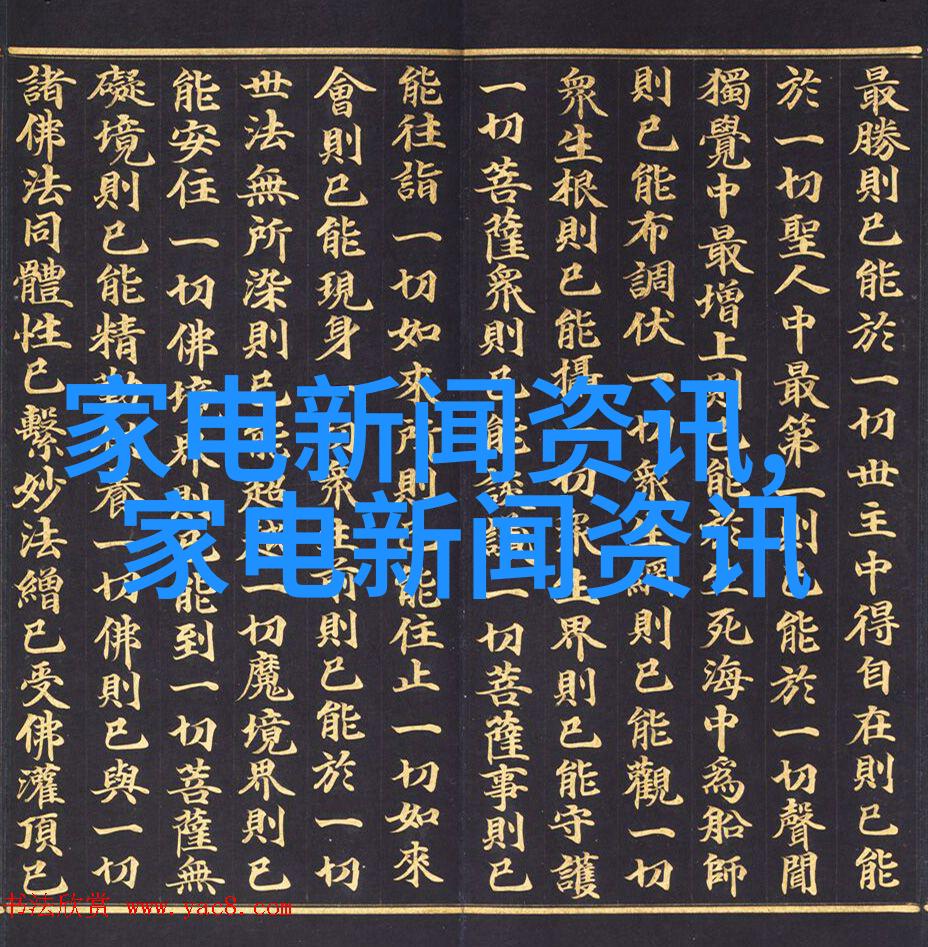 最勝則已能於一切世主中得自在則已能
於一切聖人中最第一則已能於一切聲聞
獨覺中最增上則已能於生死海中爲船師
則已能布調伏一切衆生網則已能觀一切
衆生根則已能攝一切衆生界則已能守護
一切菩薩衆則已能談議一切菩薩事則已
能往詣一切如來所則已能住止一切如來
會則已能現身一切衆生前則已能於一切
世法無所染則已能超越一切魔境界則已
能安住一切佛境界則已能到一切菩薩無
礙境則已能精勤供養一切佛則已與一切
諸佛法同體性已繫妙法繒已受佛灌頂已
家电新闻资讯,
家电新闻资讯
书法欣赏 www.yac8.com